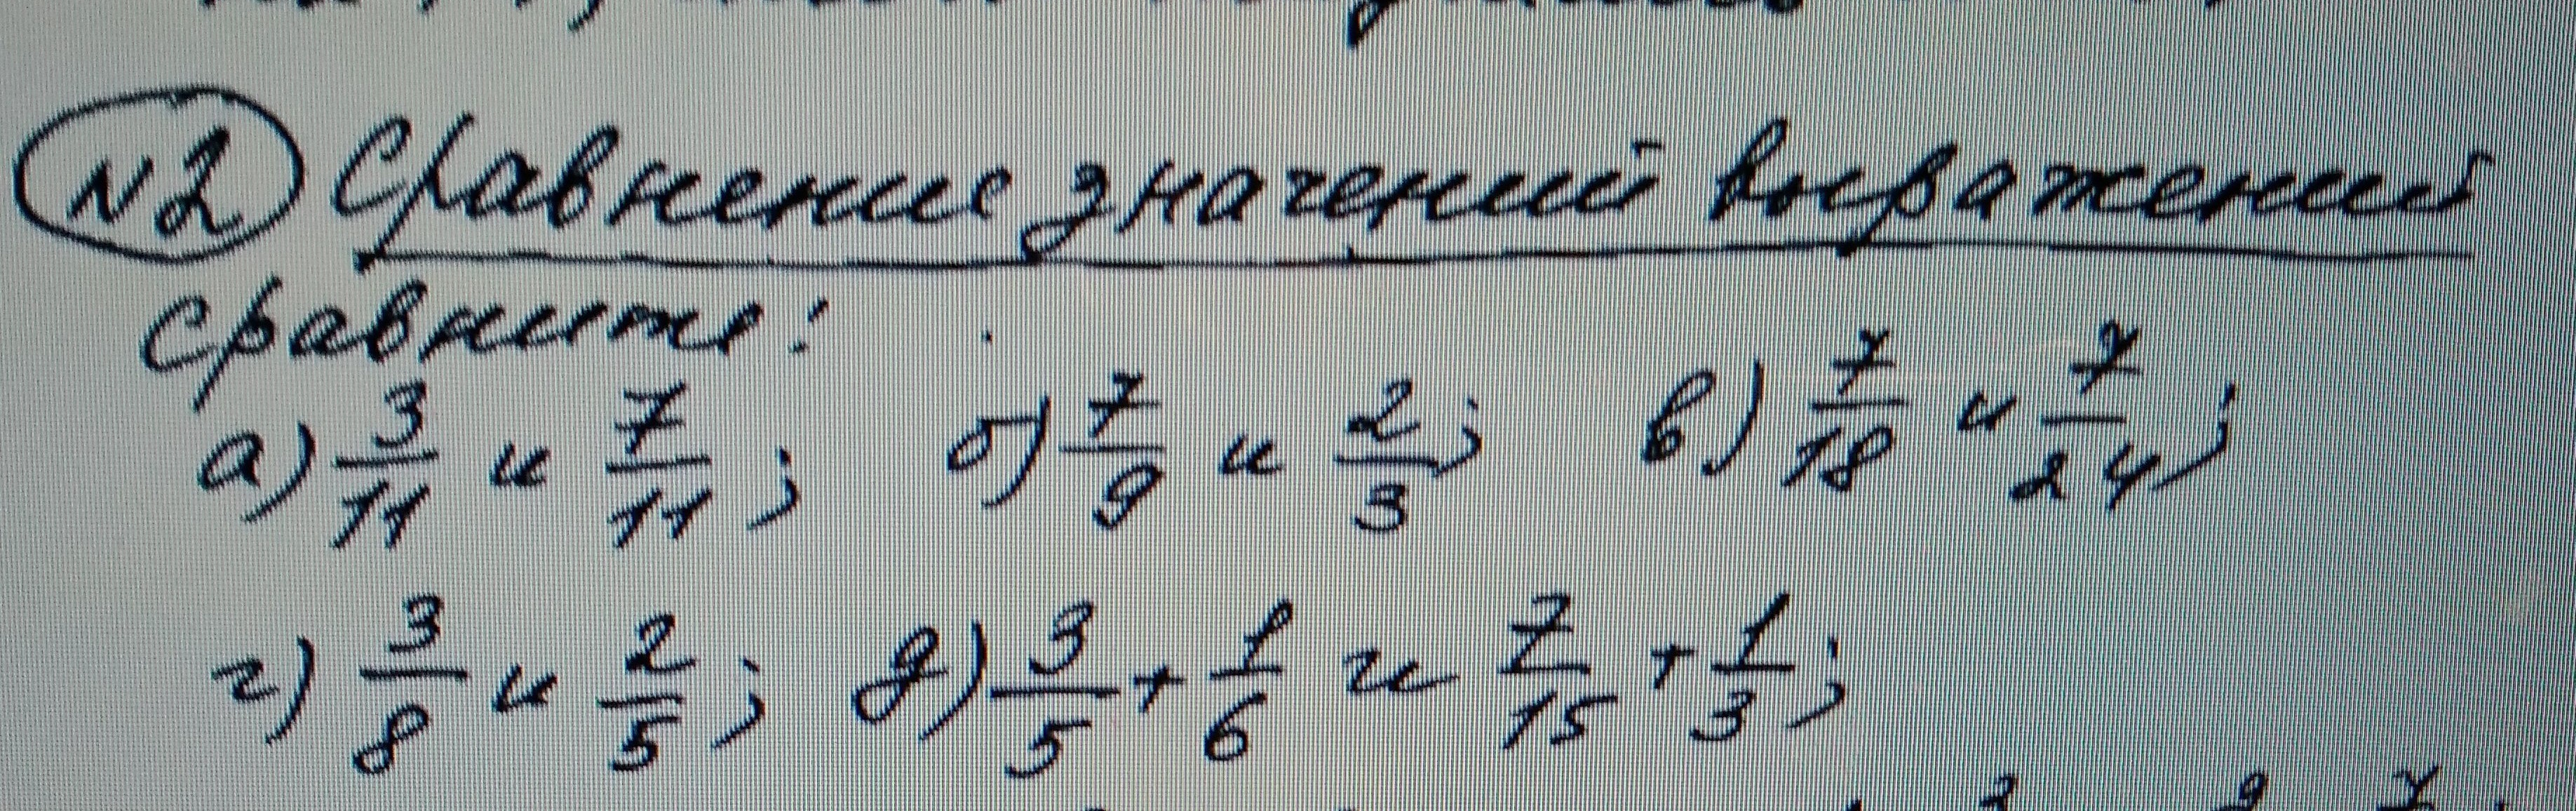 №2 Сравнение значений выражений
Сравните:
а) 3/11 и 7/11; б) 7/9 и 2/3; в) 7/18 и 7/24;
г) 3/8 и 2/5; д) 3/5 + 1/6 и 7/15 + 1/3;